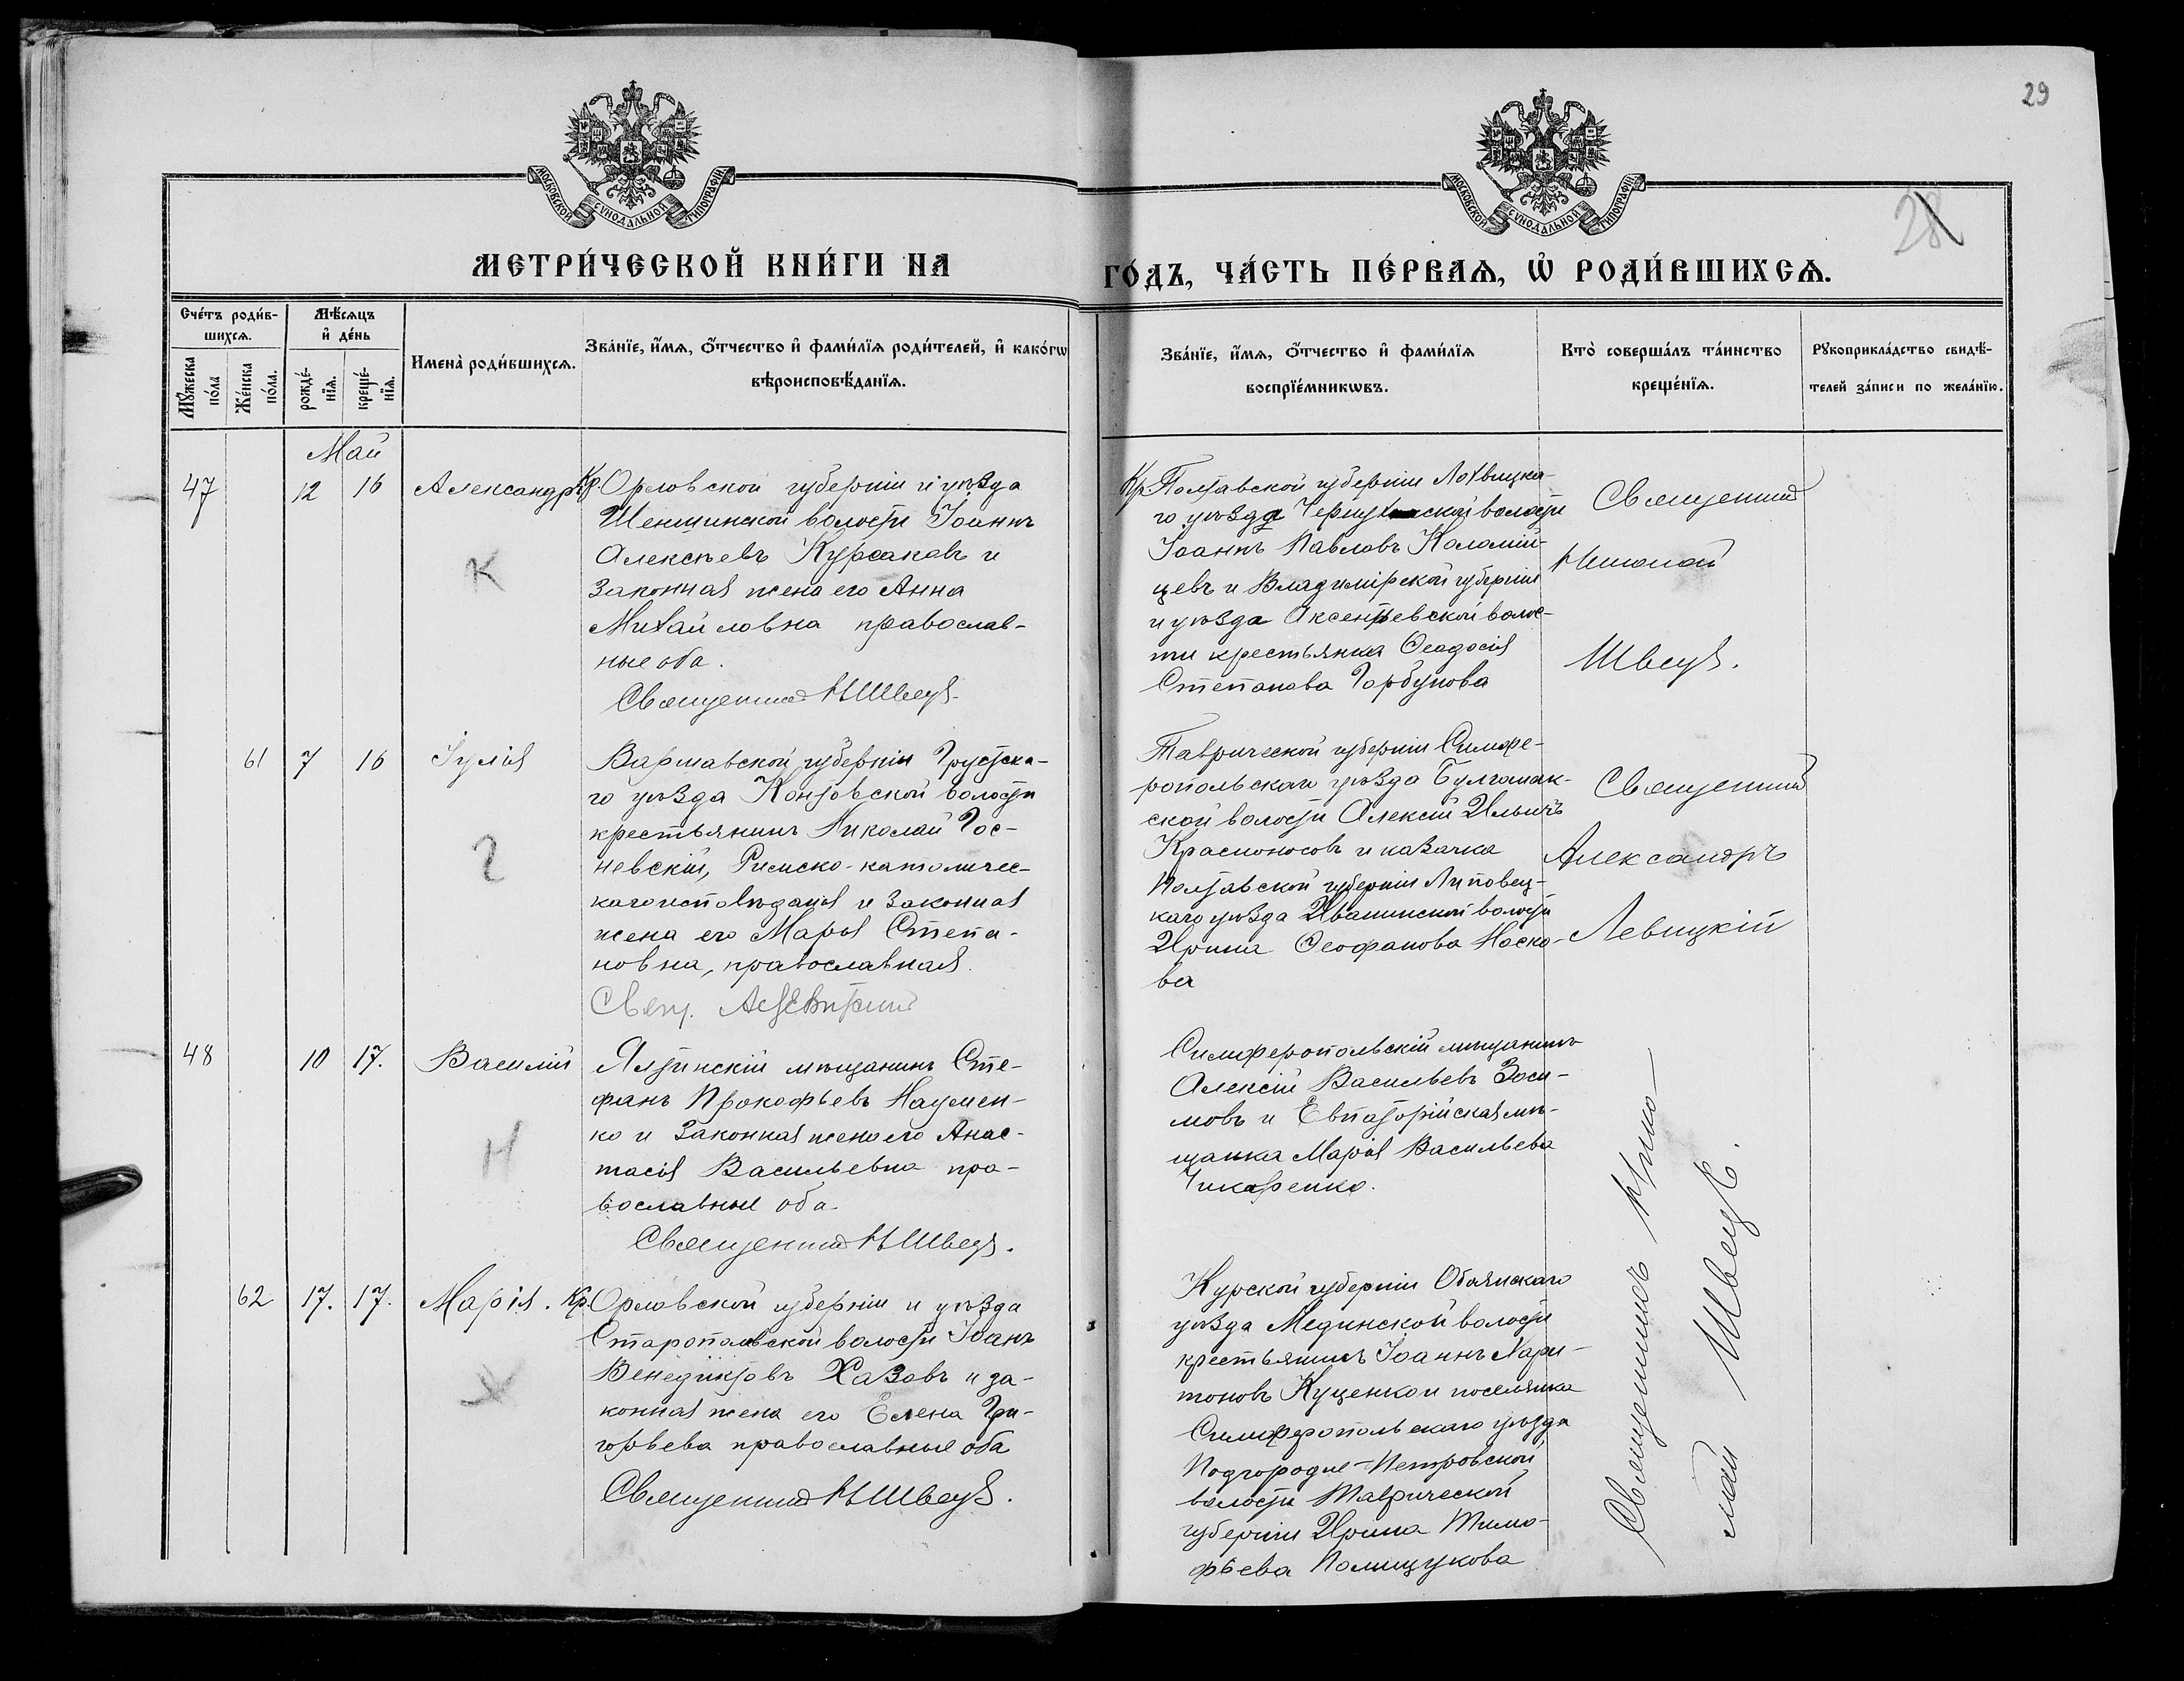 29
28
МОСКОВСКОЙ СѴНОДАЛЬНОЙ ТИПОГРАФІИ
МОСКОВСКОЙ СѴНОДАЛЬНОЙ ТИПОГРАФІИ
МЕТРИ́ЧЕСКОЙ КНИ́ГИ НА
ГО́ДЪ, ЧА́СТЬ ПЕ́РВАѦ, Ѽ РОДИ́ВШИХСѦ.
Сче́тъ роди́в-
шихсѧ.
Мꙋ́жеска по́ла
Же́нска по́ла.
Мѣ́сѧцъ
и҆ де́нь
рожде́-
нїѧ.
креще́-
нїѧ.
Имена̀ роди́вшихсѧ.
Зва́нїе, и҆́мѧ, ѻ҆́тчество и҆ фами́лїѧ роди́телей, и҆ како́гѡ
вѣроисповѣ́данїѧ.
Зва́нїе, и҆́мѧ, ѻ҆́тчество и҆ фами́лїѧ
воспрїе́мникѡвъ.
Кто̀ соверша́лъ та́инство
креще́нїѧ.
Рꙋкоприкла́дство свидѣ́-
телей за́писи по жела́нїю.
Май
47
12 16
Александръ
Кр. Орловской губерніи и уѣзда
Шеншинской волости Іоаннъ
Алексѣевъ Курсаковъ и
законная жена его Анна
Михайловна православ-
ные оба.
Священникъ Н Швецъ.
К
Кр. Полтавской губерніи Лохвицка-
го уѣзда волости
Іоаннъ Павловъ Коломій-
цевъ и Владимірской губерніи
и уѣзда Аксентьевской волос-
ти крестьянка Ѳеодосія
Степанова Горбунова
Священникъ
Николай
Швецъ.
61 7 16
Іулія
Варшавской губерніи Груецка-
го уѣзда Конговской волости
крестьянинъ Николай Гос-
невскій, Римско-католичес-
каго исповѣданія и законная
жена его Марія Степа-
новна, православная.
Свящ.
Г
Таврической губерніи Симфе-
ропольскаго уѣзда Булганак-
ской волости Алексій Ильичъ
Красноносовъ и казачка
Полтавской губерніи Липовец-
каго уѣзда Ивашинской волости
Ирина Ѳеофанова Носко-
ва
Священникъ
Александръ
Левицкій
48
10 17.
Василій
Ялтинскій мѣщанинъ Сте-
фанъ Прокофьевъ Наумен-
ко и законная жена его Анас-
тасія Васильевна пра-
вославные оба.
Священникъ Н Швецъ.
Н
Симферопольскій мѣщанинъ
Алексій Васильевъ Зоси-
мовъ и Евпаторійская мѣ-
щанка Марія Васильева
Чикаренко.
62 17. 17.
Марія.
Кр. Орловской губерніи и уѣзда
Старопольской волости Іоанъ
Венедиктовъ Хазовъ и за-
конная жена его Елена Гри-
горьева православные оба
Священникъ Н Швецъ.
Х
Курской губерніи Обоянскаго
уѣзда Мединской волости
крестьянинъ Іоаннъ Хари-
тоновъ Куценко и поселянка
Симферопольскаго уѣзда
Подгородне-Петровской
волости Таврической
губерніи Ирина Тимо-
фѣева Полищукова
Священникъ Нико-
лай Швецъ.